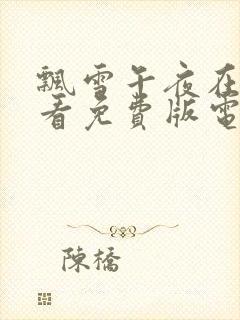 飄雪午夜在
看免費版電
陳橋